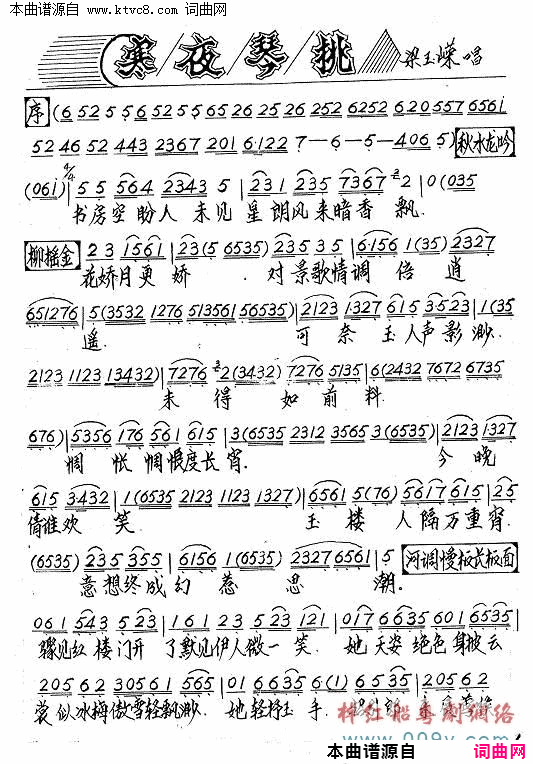 本曲谱源自 www.ktvc8.com 词曲网
寒夜琴挑 梁玉嵘唱
序 (6 52 5 5 6 52 5 5 65 26 25 26 252 6252 620 557 656i
52 46 52 443 2367 201 6·122 7-6-5-406 5) 秋水龙吟
(061) 5 5 564 2343 5 | 231 235 7367 2 | 0 (035
书房空盼人 未见星朗风来暗香飘.
柳摇金 2 3 1561 | 23(5 6535) 235 35 | 6156 1 (35) 2327
花娇月更娇. 对景歌情调倍逍
651276 | 5(3532 1276 513561 56535) | 2123 1327 615 3523 | 1(35
遥. 可奈玉人声影渺.
2123 1123 13432) | 7276 2(3432) 7276 5135 | 6(2432 7672 6735
未得如前料
676) | 5356 176 561 615 | 3(6535 2312 3565 3(6535) | 2123 1327
惆怅惆恨度长宵. 今晚
615 3432 | 1(6535 2123 1123 1327) | 6561 5(76) 5617 615 | 25
倩谁欢笑. 玉楼人隔万重宵.
(6535) 235 355 | 6156 1(6535) 2327 6561 | 5 河调慢板长板面
意想终成幻惹思潮.
061 543 5 23 | 161 23 5 23 121 | 017 6635 601 6535 |
骤见红楼门开 了默见伊人微一笑. 她天姿绝色身披云
2056 2 3056 1 565 | 01 6635 6(1) 6 535 | 2056 2
裳似冰梅傲雪轻飘渺. 她轻抒玉手.
梓红船粤剧网络
本曲谱源自 词曲网